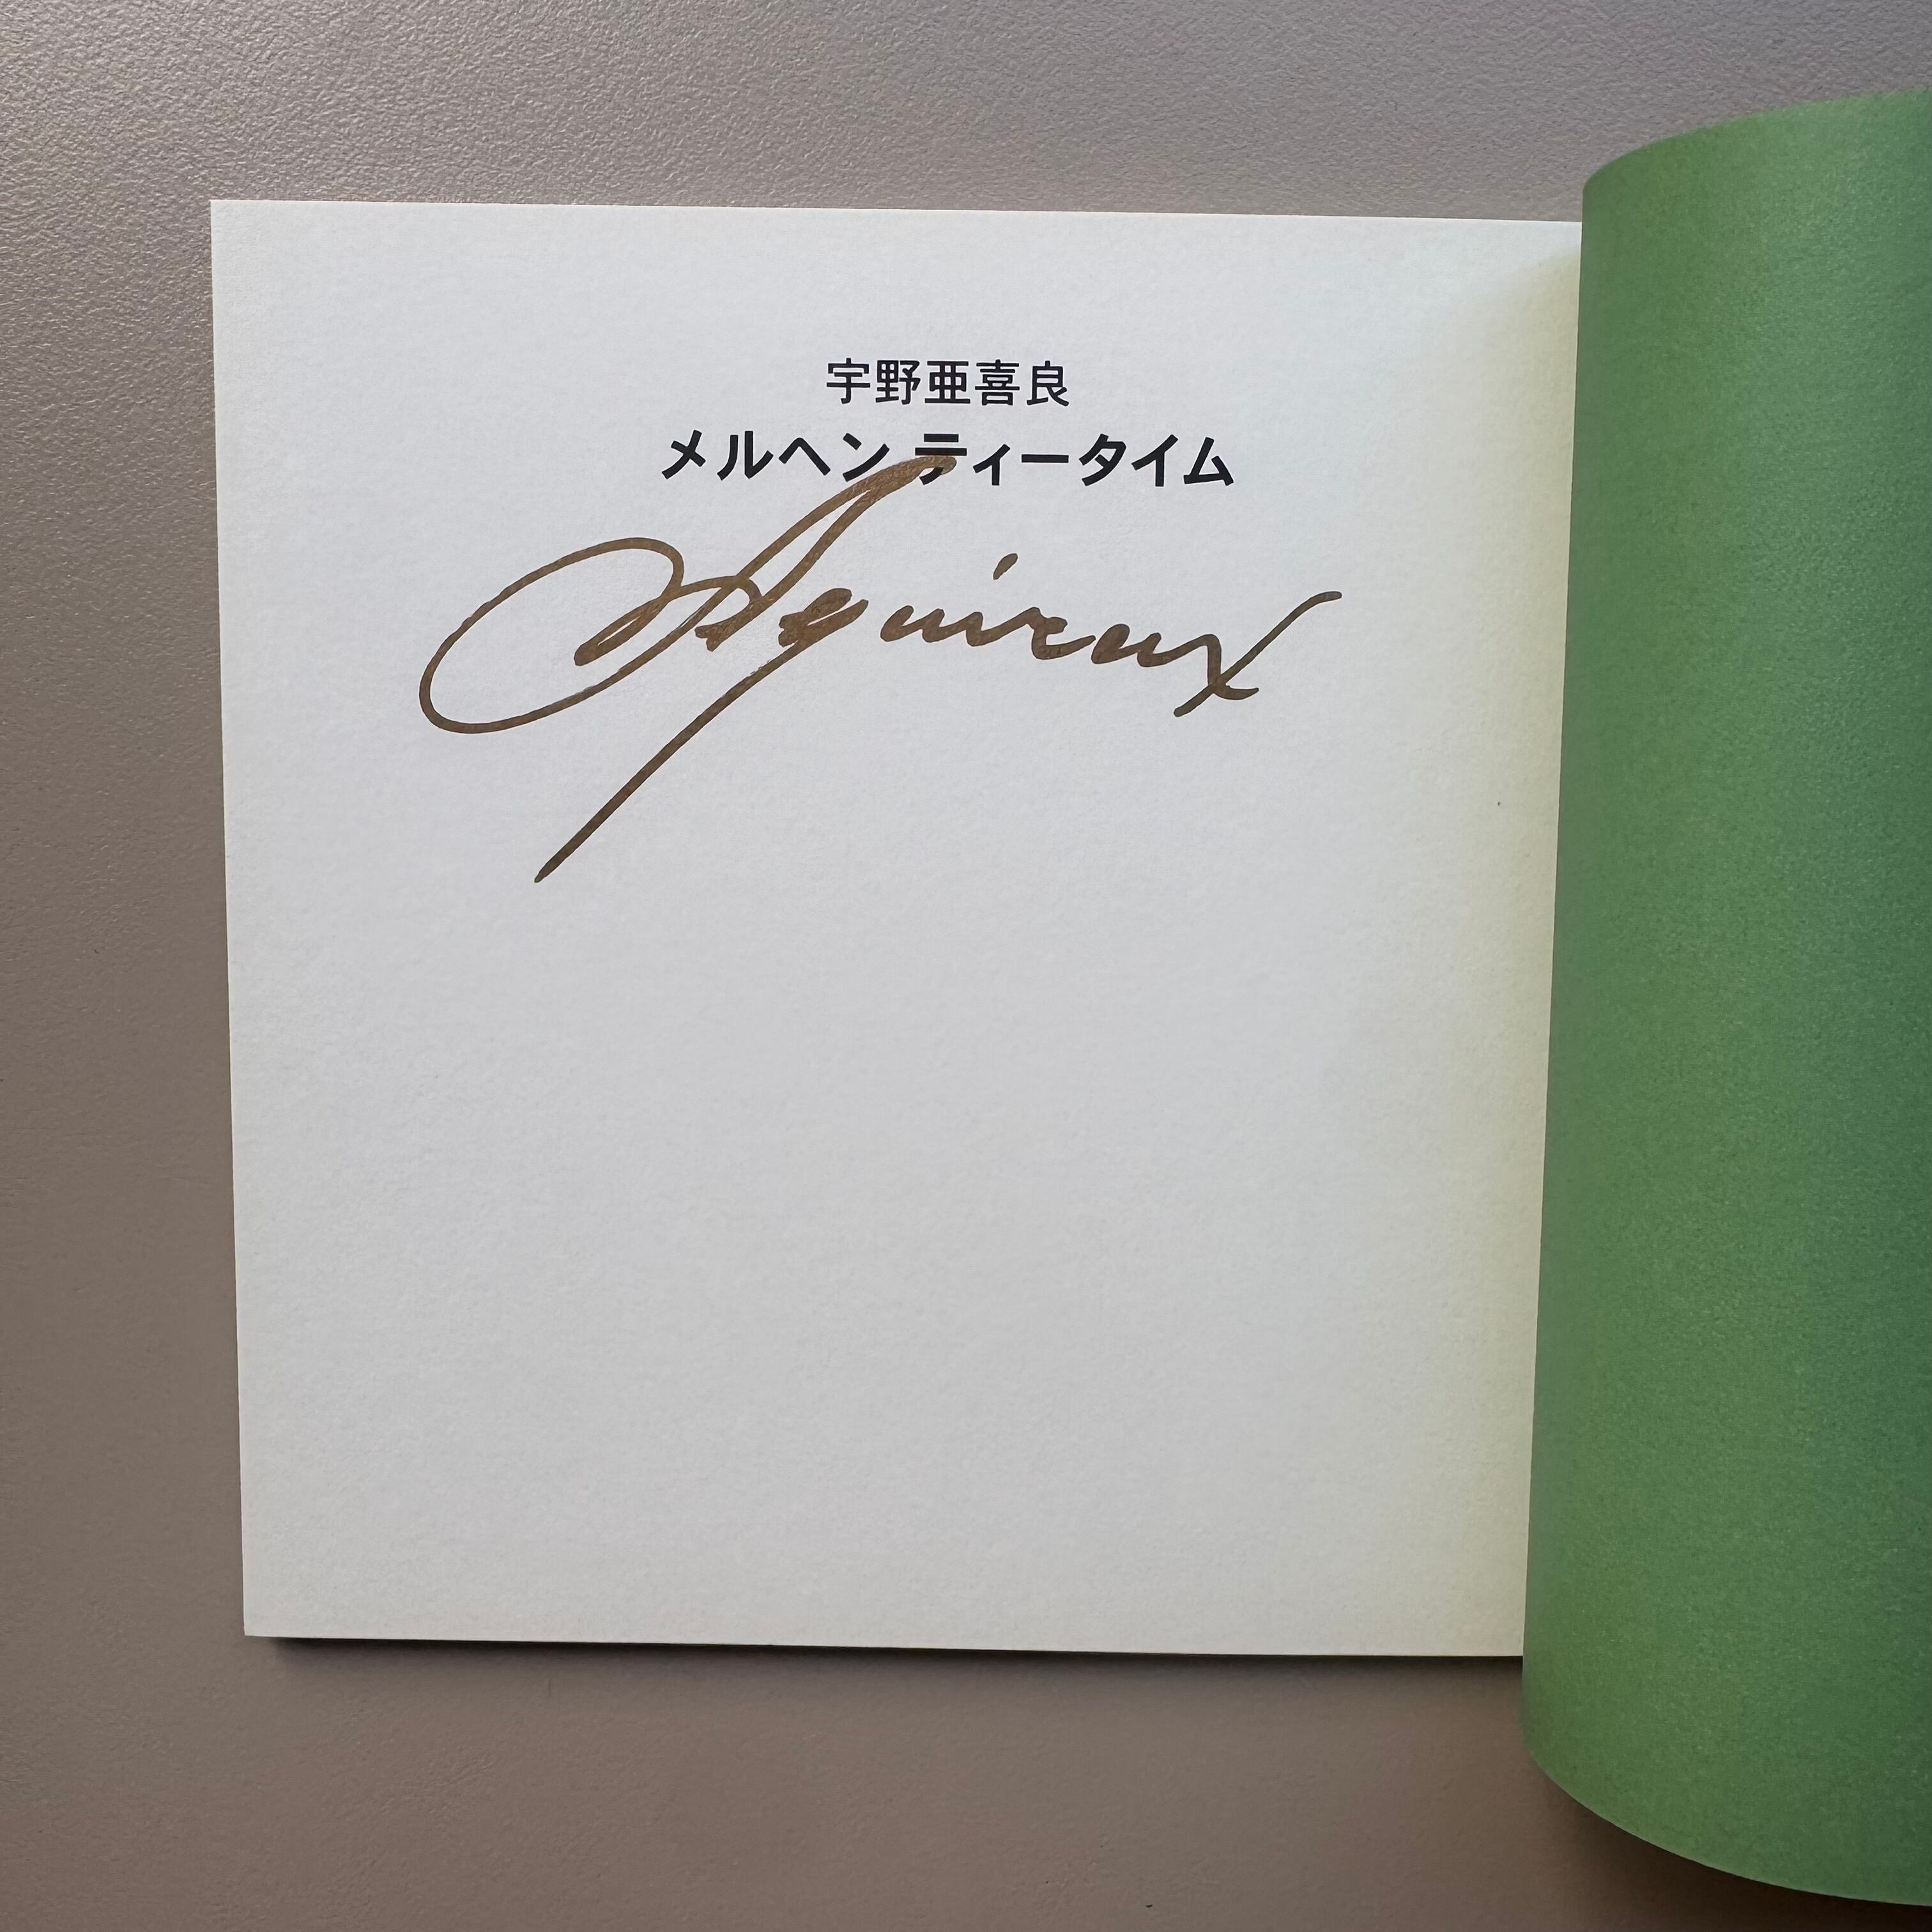 宇野亜喜良
メルヘン ティータイム
Aquirax